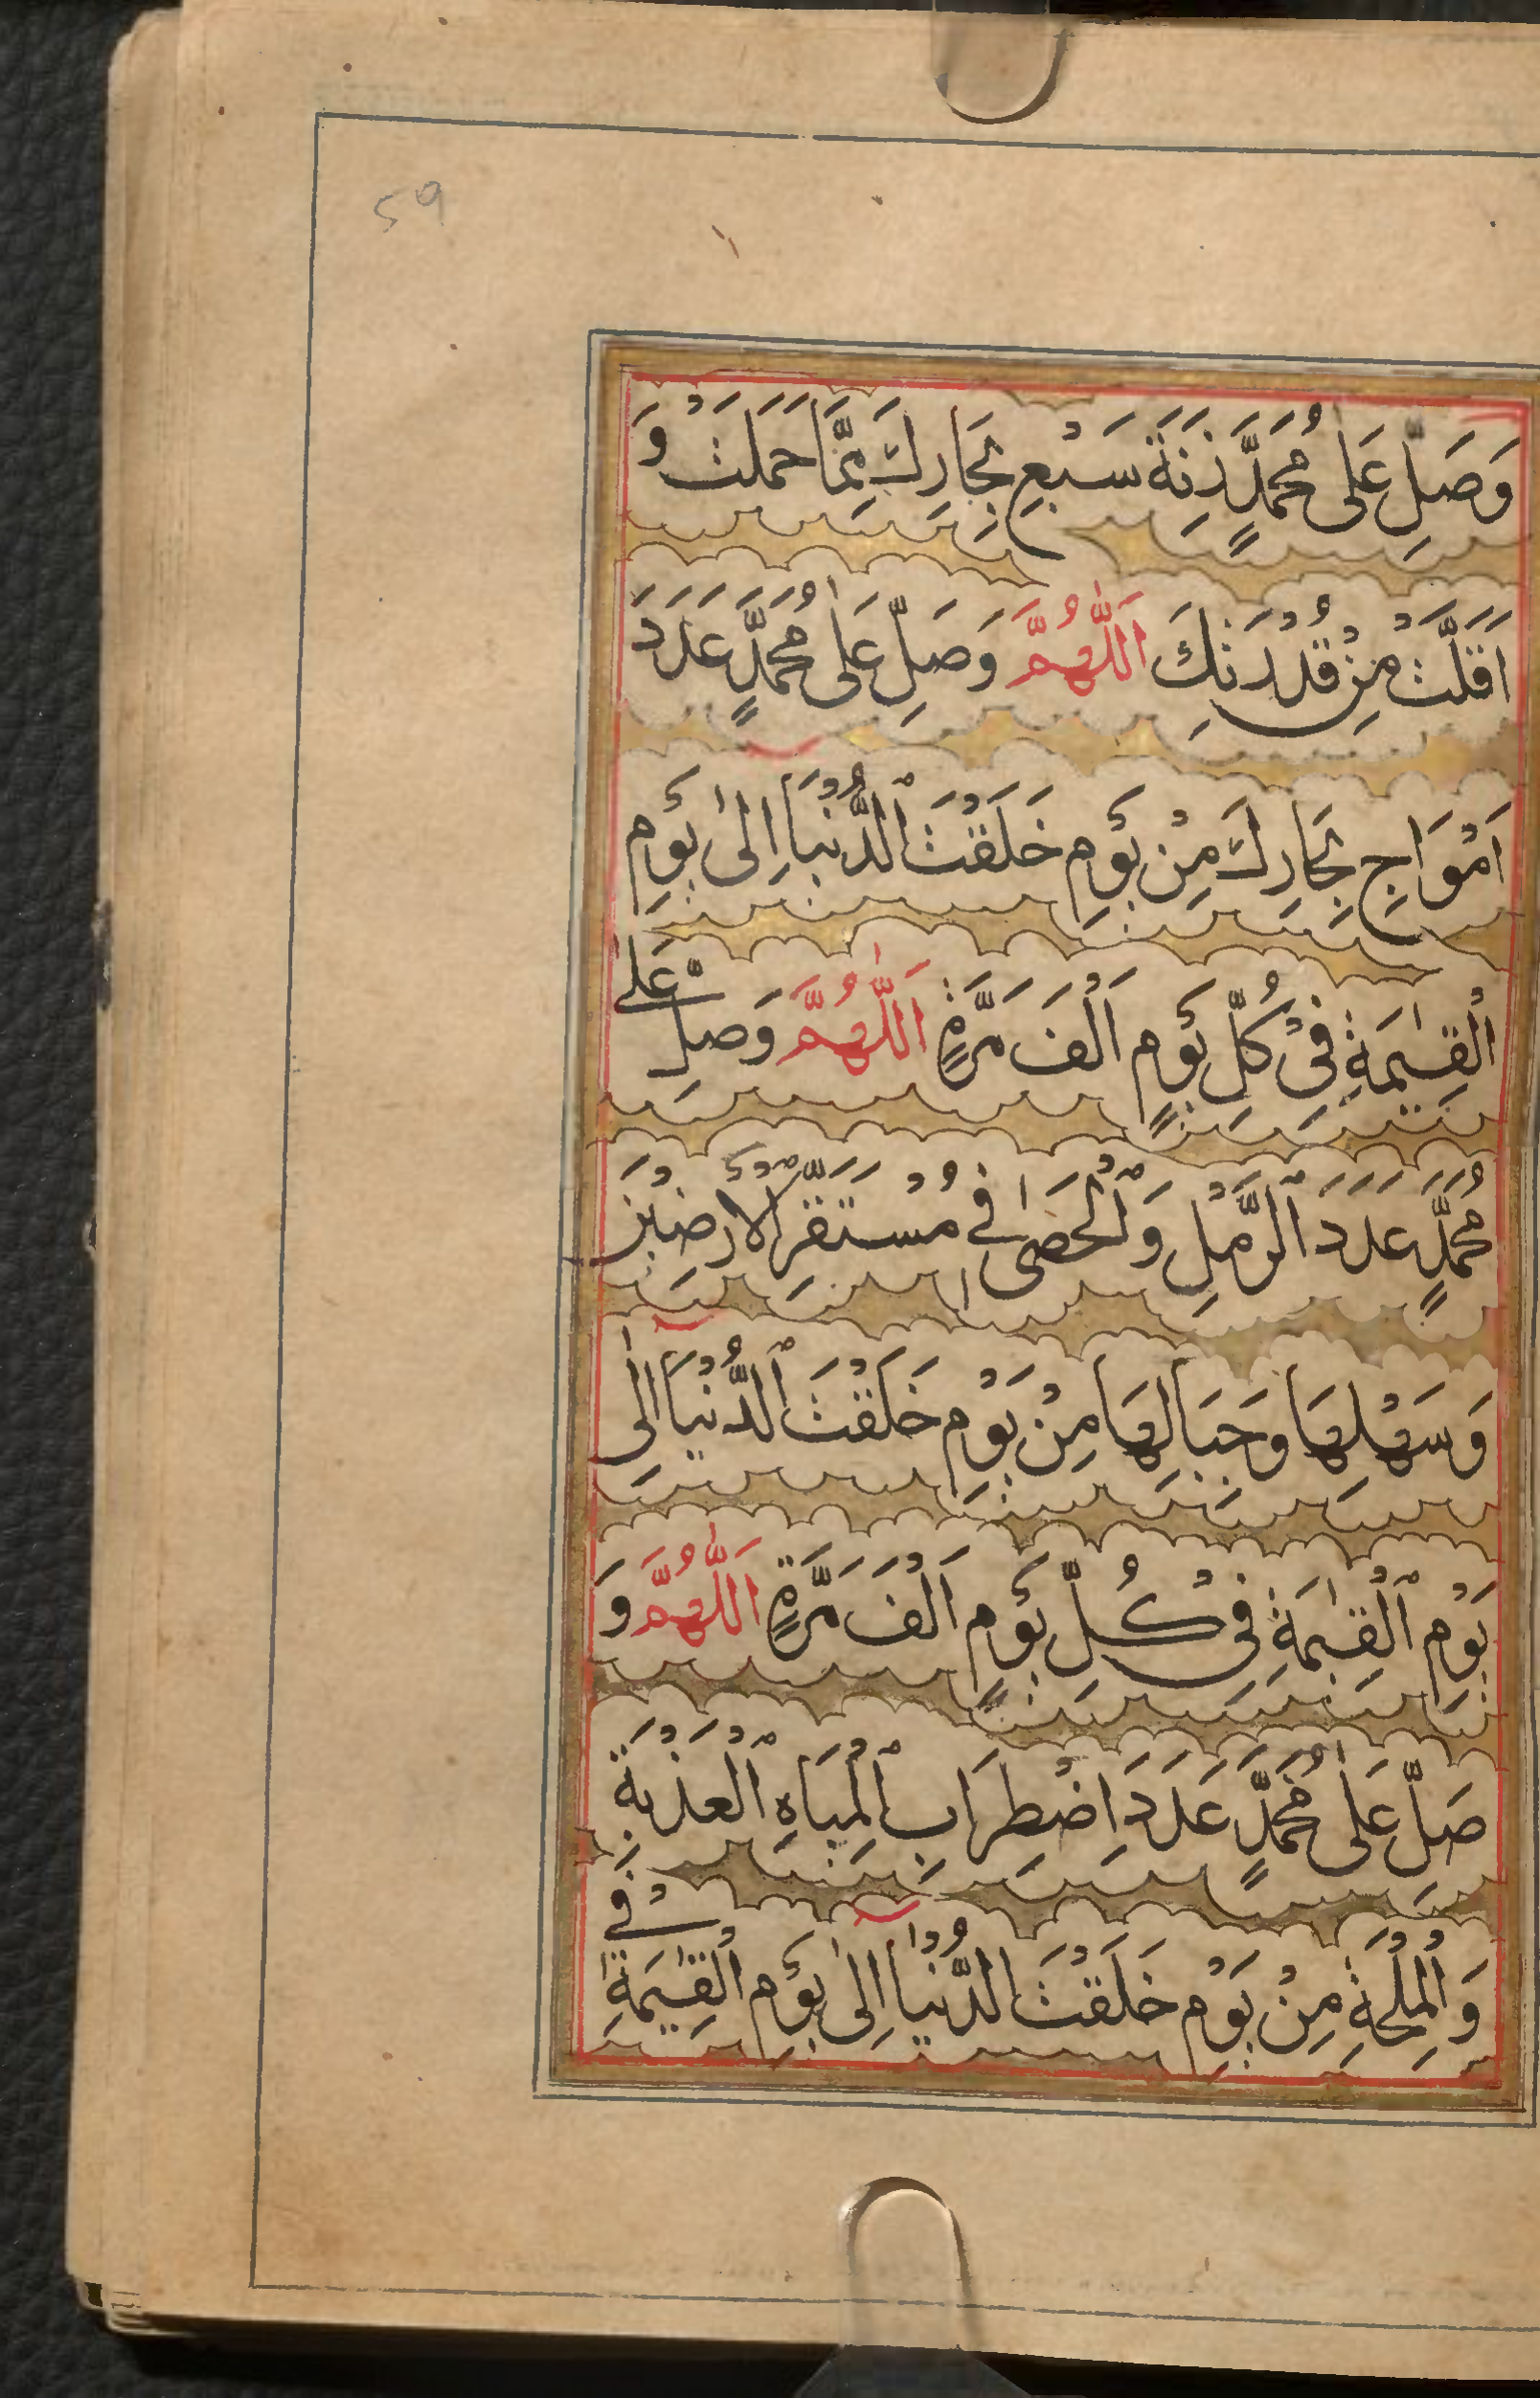 59
وَصَلِّ عَلٰى مُحَمَّدٍ زِنَةَ سَبْعِ بِحَارِكَ مِمَّا حَمَلَتْ وَ
اَقَلَّتْ مِنْ قُدْرَتِكَ اَللّٰهُمَّ وَصَلِّ عَلٰى مُحَمَّدٍ عَدَدَ
اَمْوَاجِ بِحَارِكَ مِنْ يَوْمِ خَلَقْتَ الدُّنْيَا اِلٰى يَوْمِ
الْقِيٰمَةِ فِىْ كُلِّ يَوْمٍ اَلْفَ مَرَّةٍ اَللّٰهُمَّ وَصَلِّ عَلٰى
مُحَمَّدٍ عَدَدَ الرَّمْلِ وَالْحَصٰى فِىْ مُسْتَقَرِّ الْاَرْضِيْنَ
وَسَهْلِهَا وَجِبَالِهَا مِنْ يَوْمِ خَلَقْتَ الدُّنْيَا اِلٰى
يَوْمِ الْقِيٰمَةِ فِىْ كُلِّ يَوْمٍ اَلْفَ مَرَّةٍ اَللّٰهُمَّ وَ
صَلِّ عَلٰى مُحَمَّدٍ عَدَدَ اضْطِرَابِ الْمِيَاهِ الْعَذْبَةِ
وَالْمِلْحَةِ مِنْ يَوْمِ خَلَقْتَ الدُّنْيَا اِلٰى يَوْمِ الْقِيٰمَةِ فِىْ